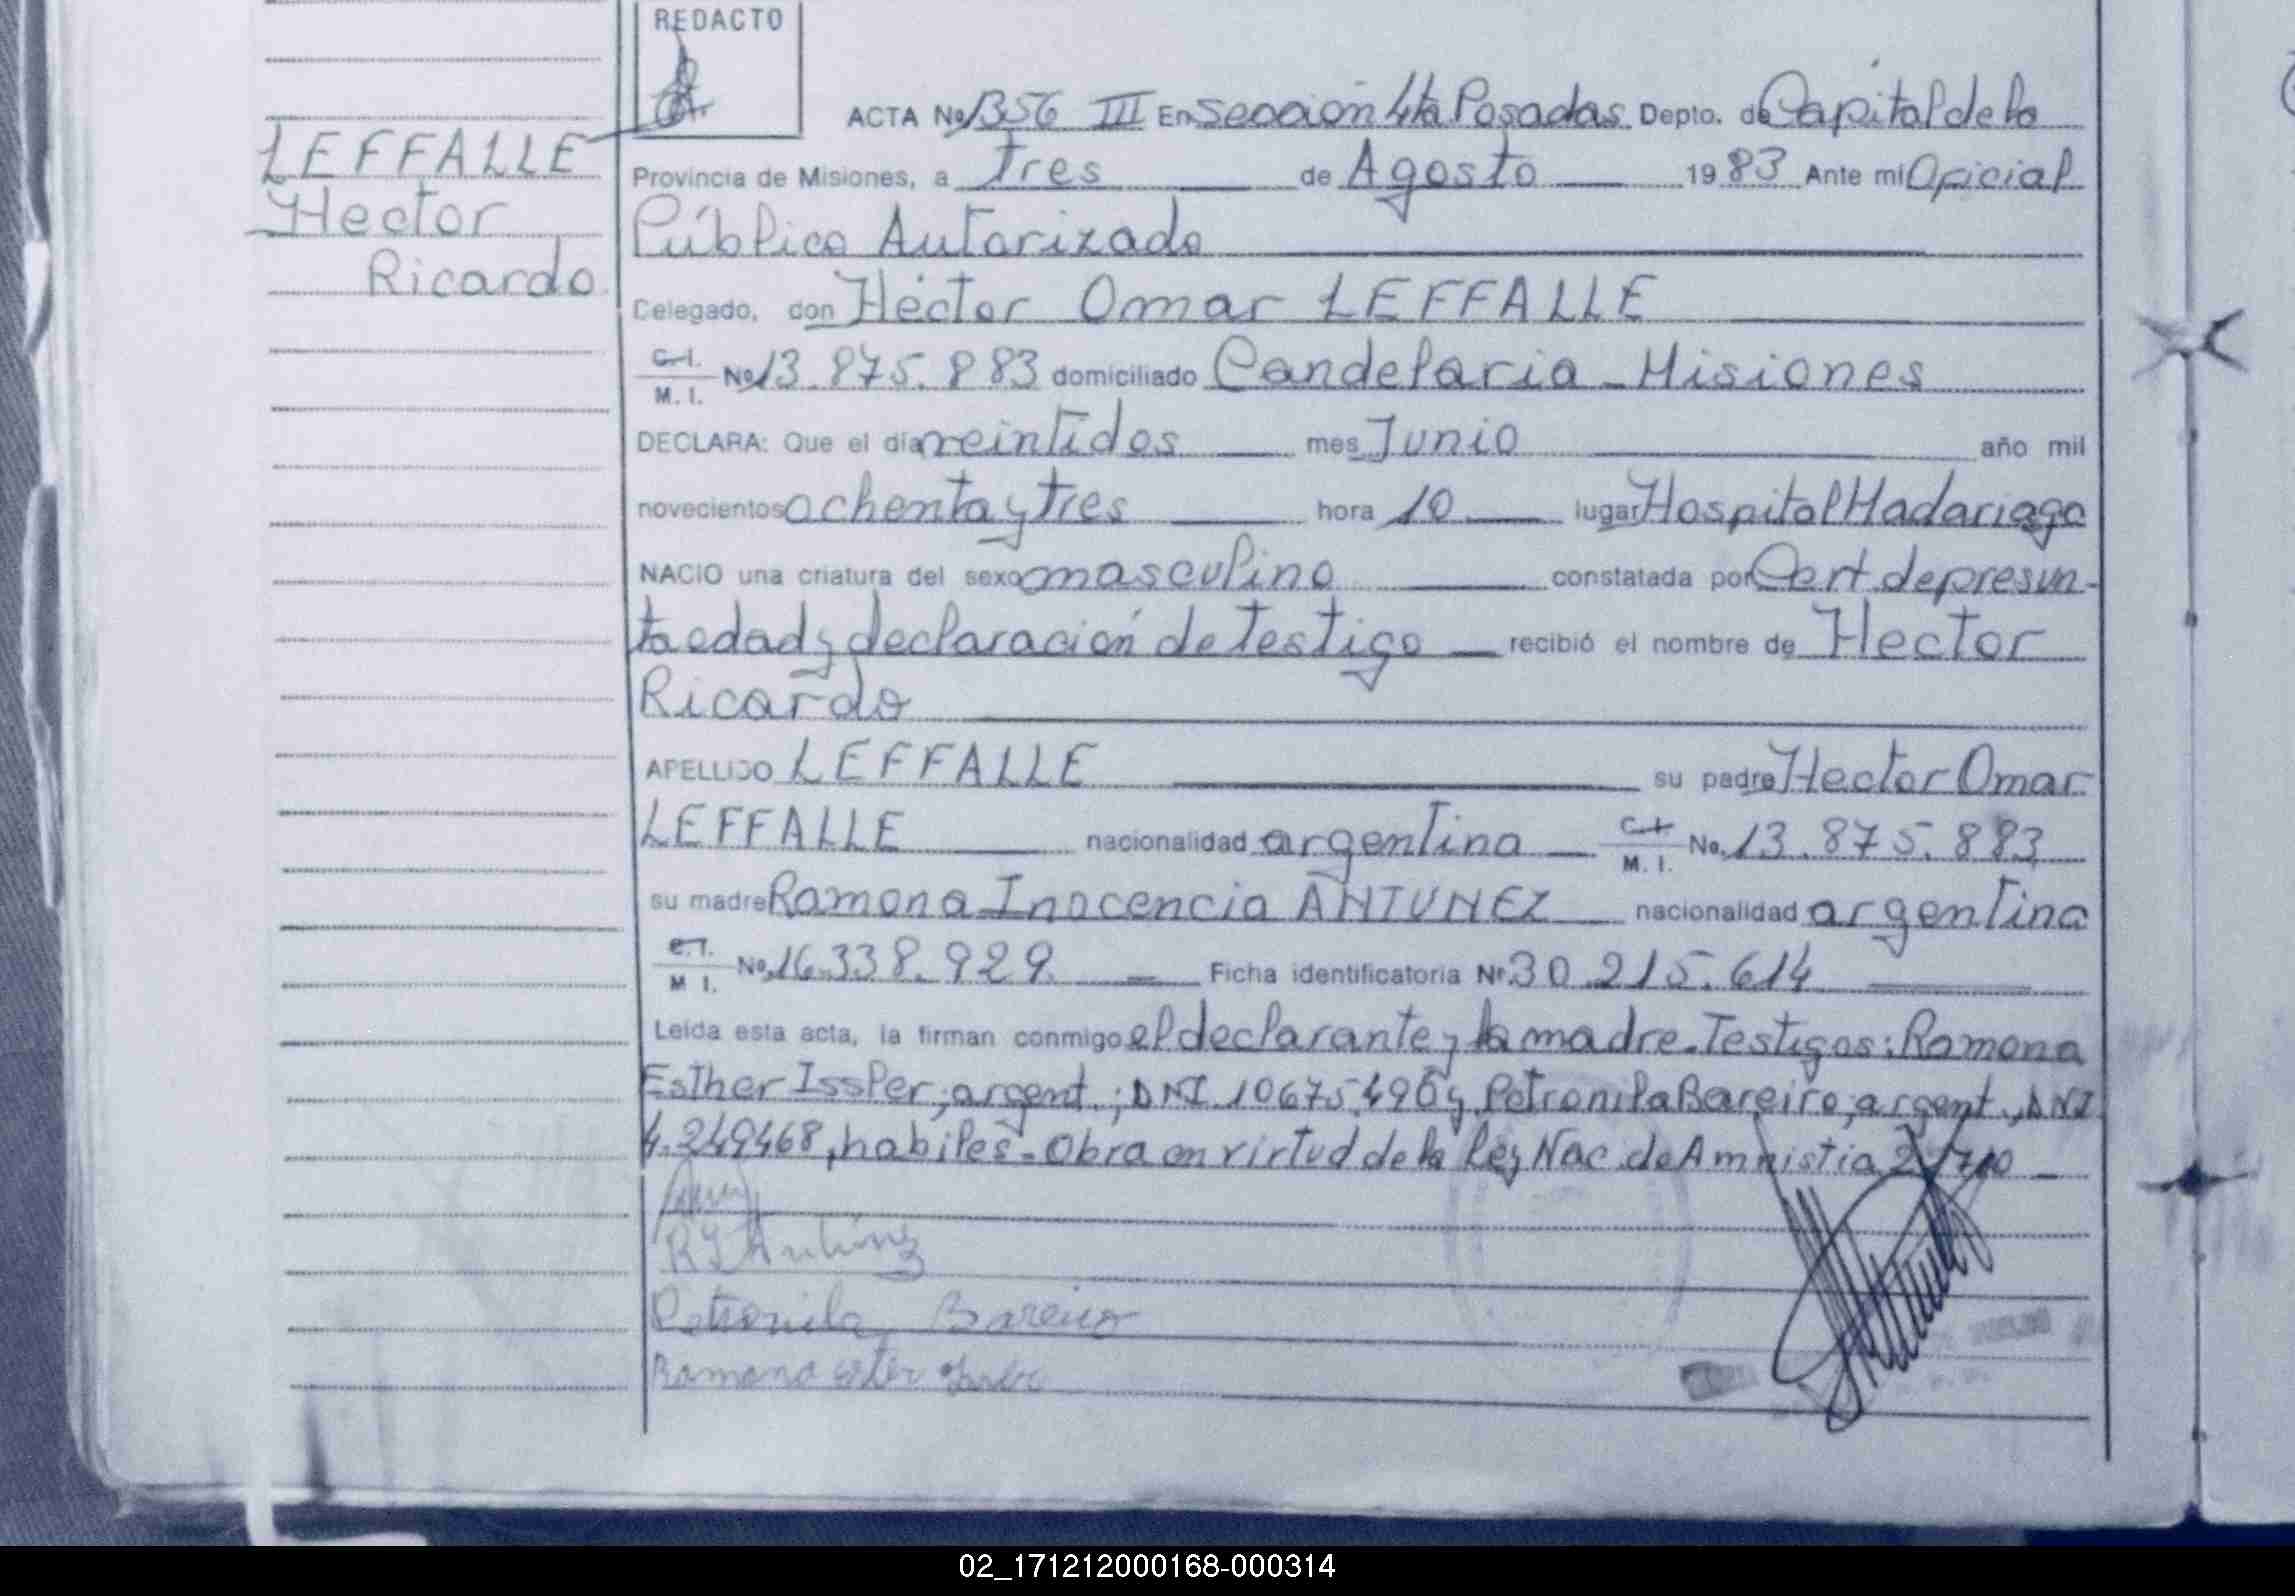 REDACTO
ACTA No 1356 III En Sección 4ta Posadas Depto. de Capital de la
LEFFALLE
Hector
Ricardo
Provincia de Misiones, a tres de Agosto 1983 Ante mi Oficial
Público Autorizado
Delegado, don Héctor Omar LEFFALLE
C.I. M.I. No 13.875.883 domiciliado Candelaria - Misiones
DECLARA: Que el día veintidos mes Junio año mil
novecientos ochenta y tres hora 10 lugar Hospital Madariaga
NACIO una criatura del sexo masculino constatada por Cert. de presun-
ta edad y declaración de testigo recibió el nombre de Hector
Ricardo
APELLIDO LEFFALLE su padre Hector Omar
LEFFALLE nacionalidad argentina C.I. M.I. No. 13.875.883
su madre Ramona Inocencia ANTUNEZ nacionalidad argentina
C.I. M.I. No. 16.338.929 Ficha identificatoria Nr. 30.215.614
Leída esta acta, la firman conmigo el declarante y la madre. Testigos: Ramona
Esther Issler, argent.; DNI. 10675.490 y Petronila Bareiro, argent., DNI
4.249468, habiles. Obra en virtud de la ley Nac de Amnistia
R I Antúnez
Petronila Bareiro
Ramona ester
02_171212000168-000314